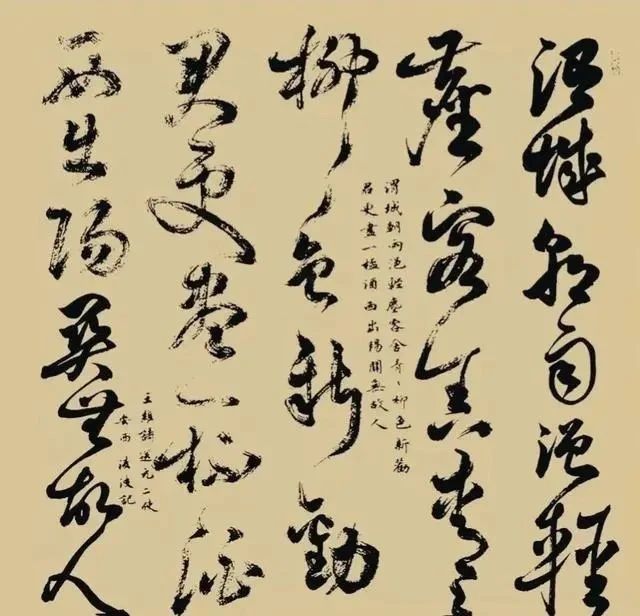 渭城朝雨浥輕
塵客舍青々
渭城朝雨浥輕塵客舍青々柳色新勸
君更盡一桮酒西出陽關無故人
柳色新勸
君更盡一杯酒
西出陽關無故人
王維詩送元二使
安西 記